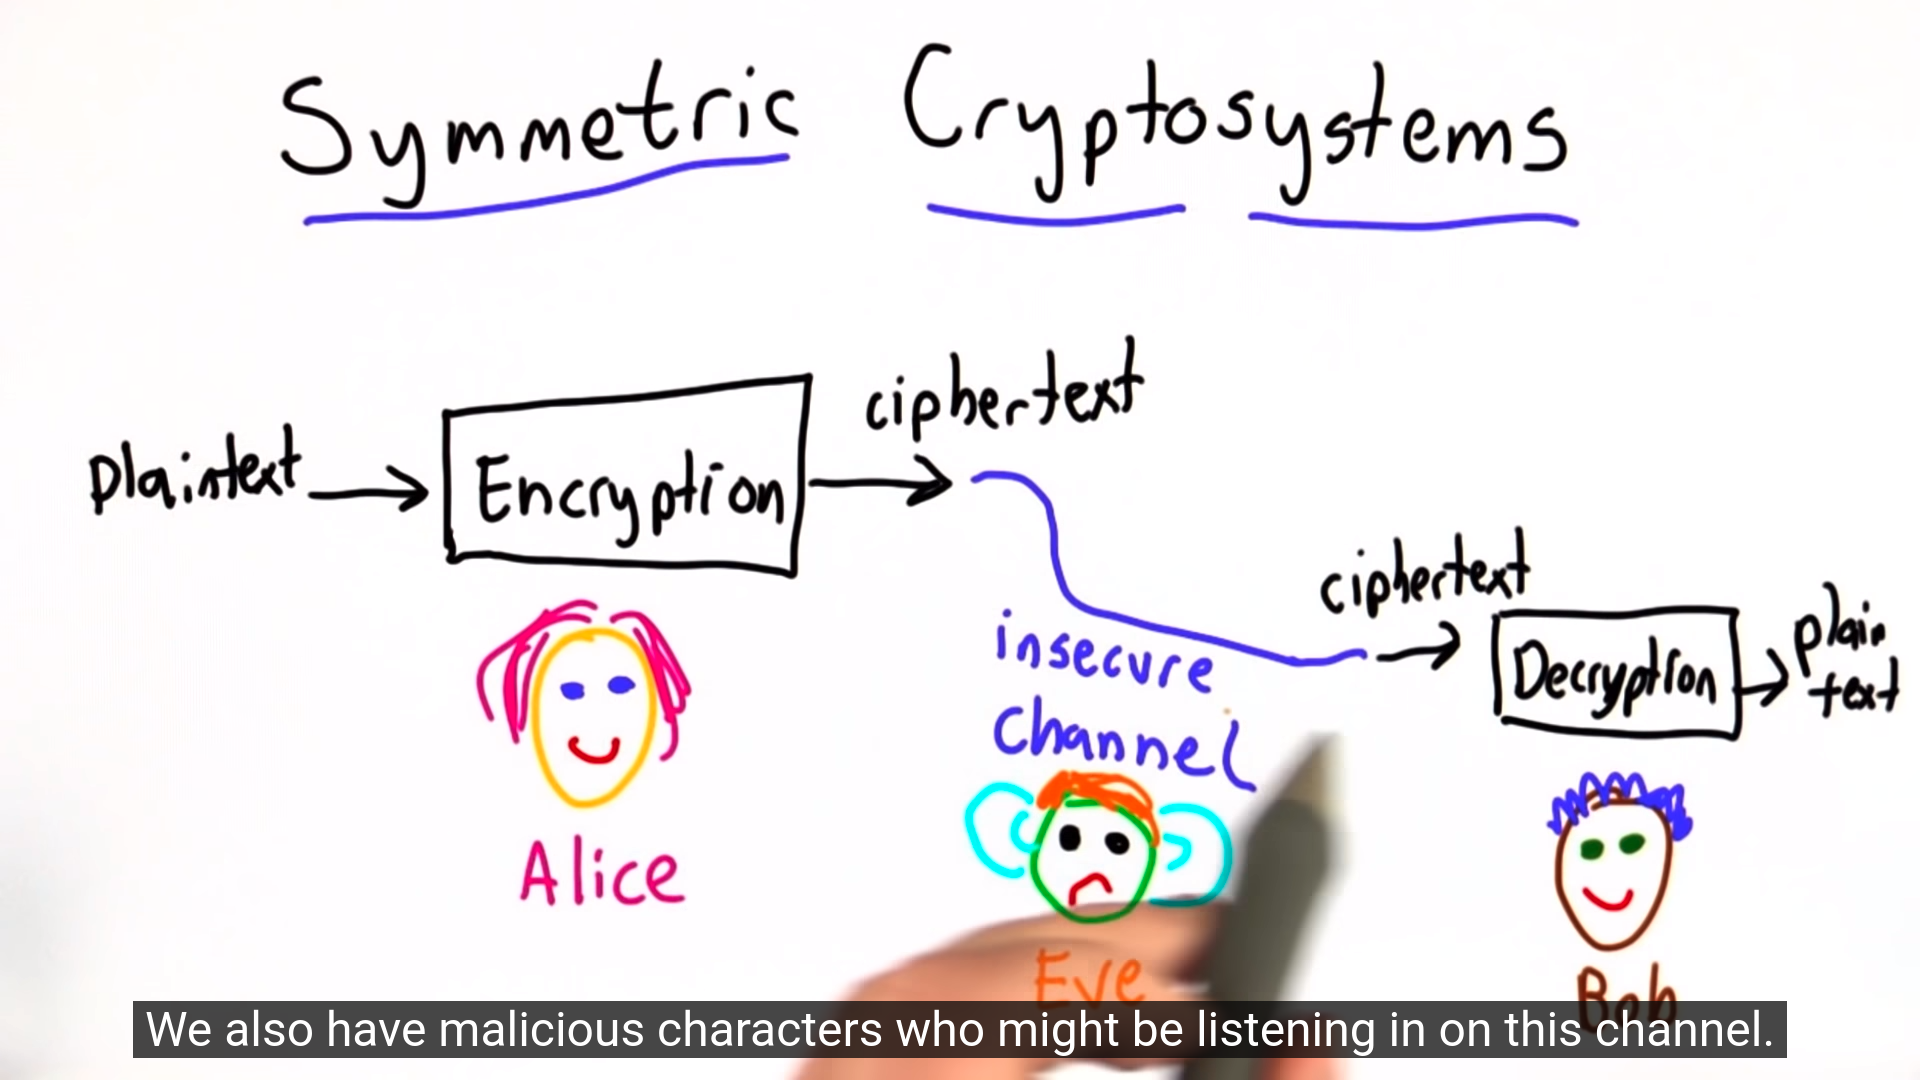 Symmetric Cryptosystems
ciphertext
Plaintext
Encryption
ciphertext
insecure
plain
text
Decryption
channel
Alice
Eve
Bob
We also have malicious characters who might be listening in on this channel.